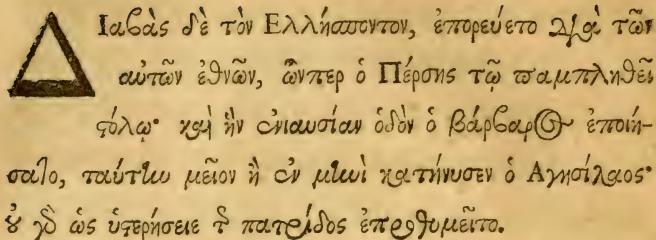 Διαβὰς δὲ τὸν Ἑλλήσποντον, ἐπορεύετο διὰ τῶν
αὐτῶν ἐθνῶν, ὧνπερ ὁ Πέρσης τῷ παμπληθεῖ
στόλῳ· καὶ ἣν ἐνιαυσίαν ὁδὸν ὁ βάρβαρος ἐποιή-
σατο, ταύτην μεῖον ἢ ἐν μηνὶ κατήνυσεν ὁ Ἀγησίλαος·
οὐ γὰρ ὡς ὑστερήσειε τῆς πατρίδος ἐπροθυμεῖτο.